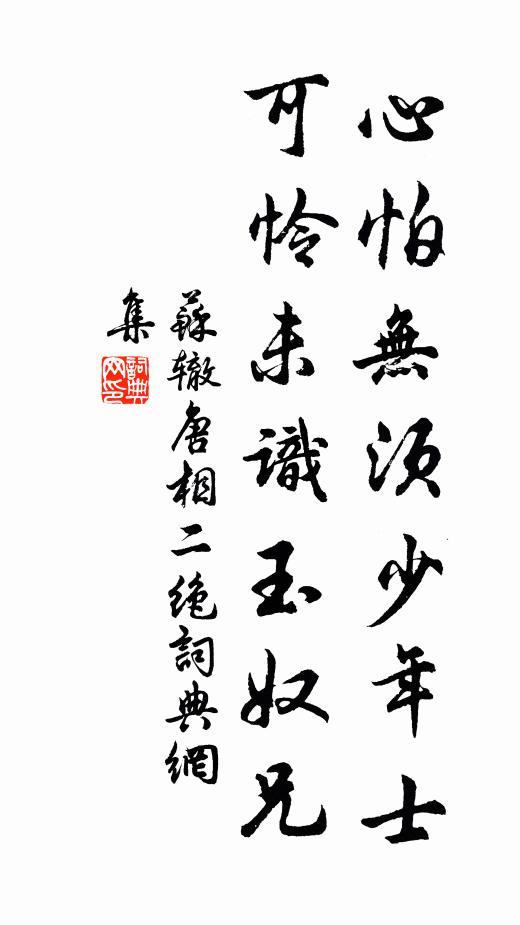 心怕無須少年士
可怜未識玉奴兄
蘇辙唐相二绝詞典網
集
詞典网印